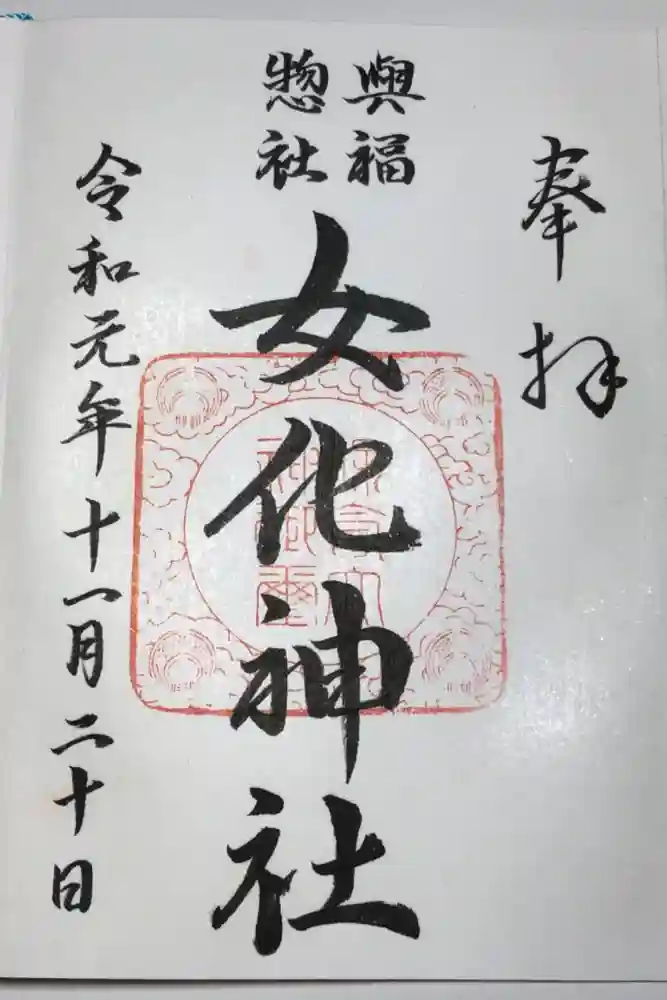 奉拝
興福
惣社
女化神社
令和元年十一月二十日